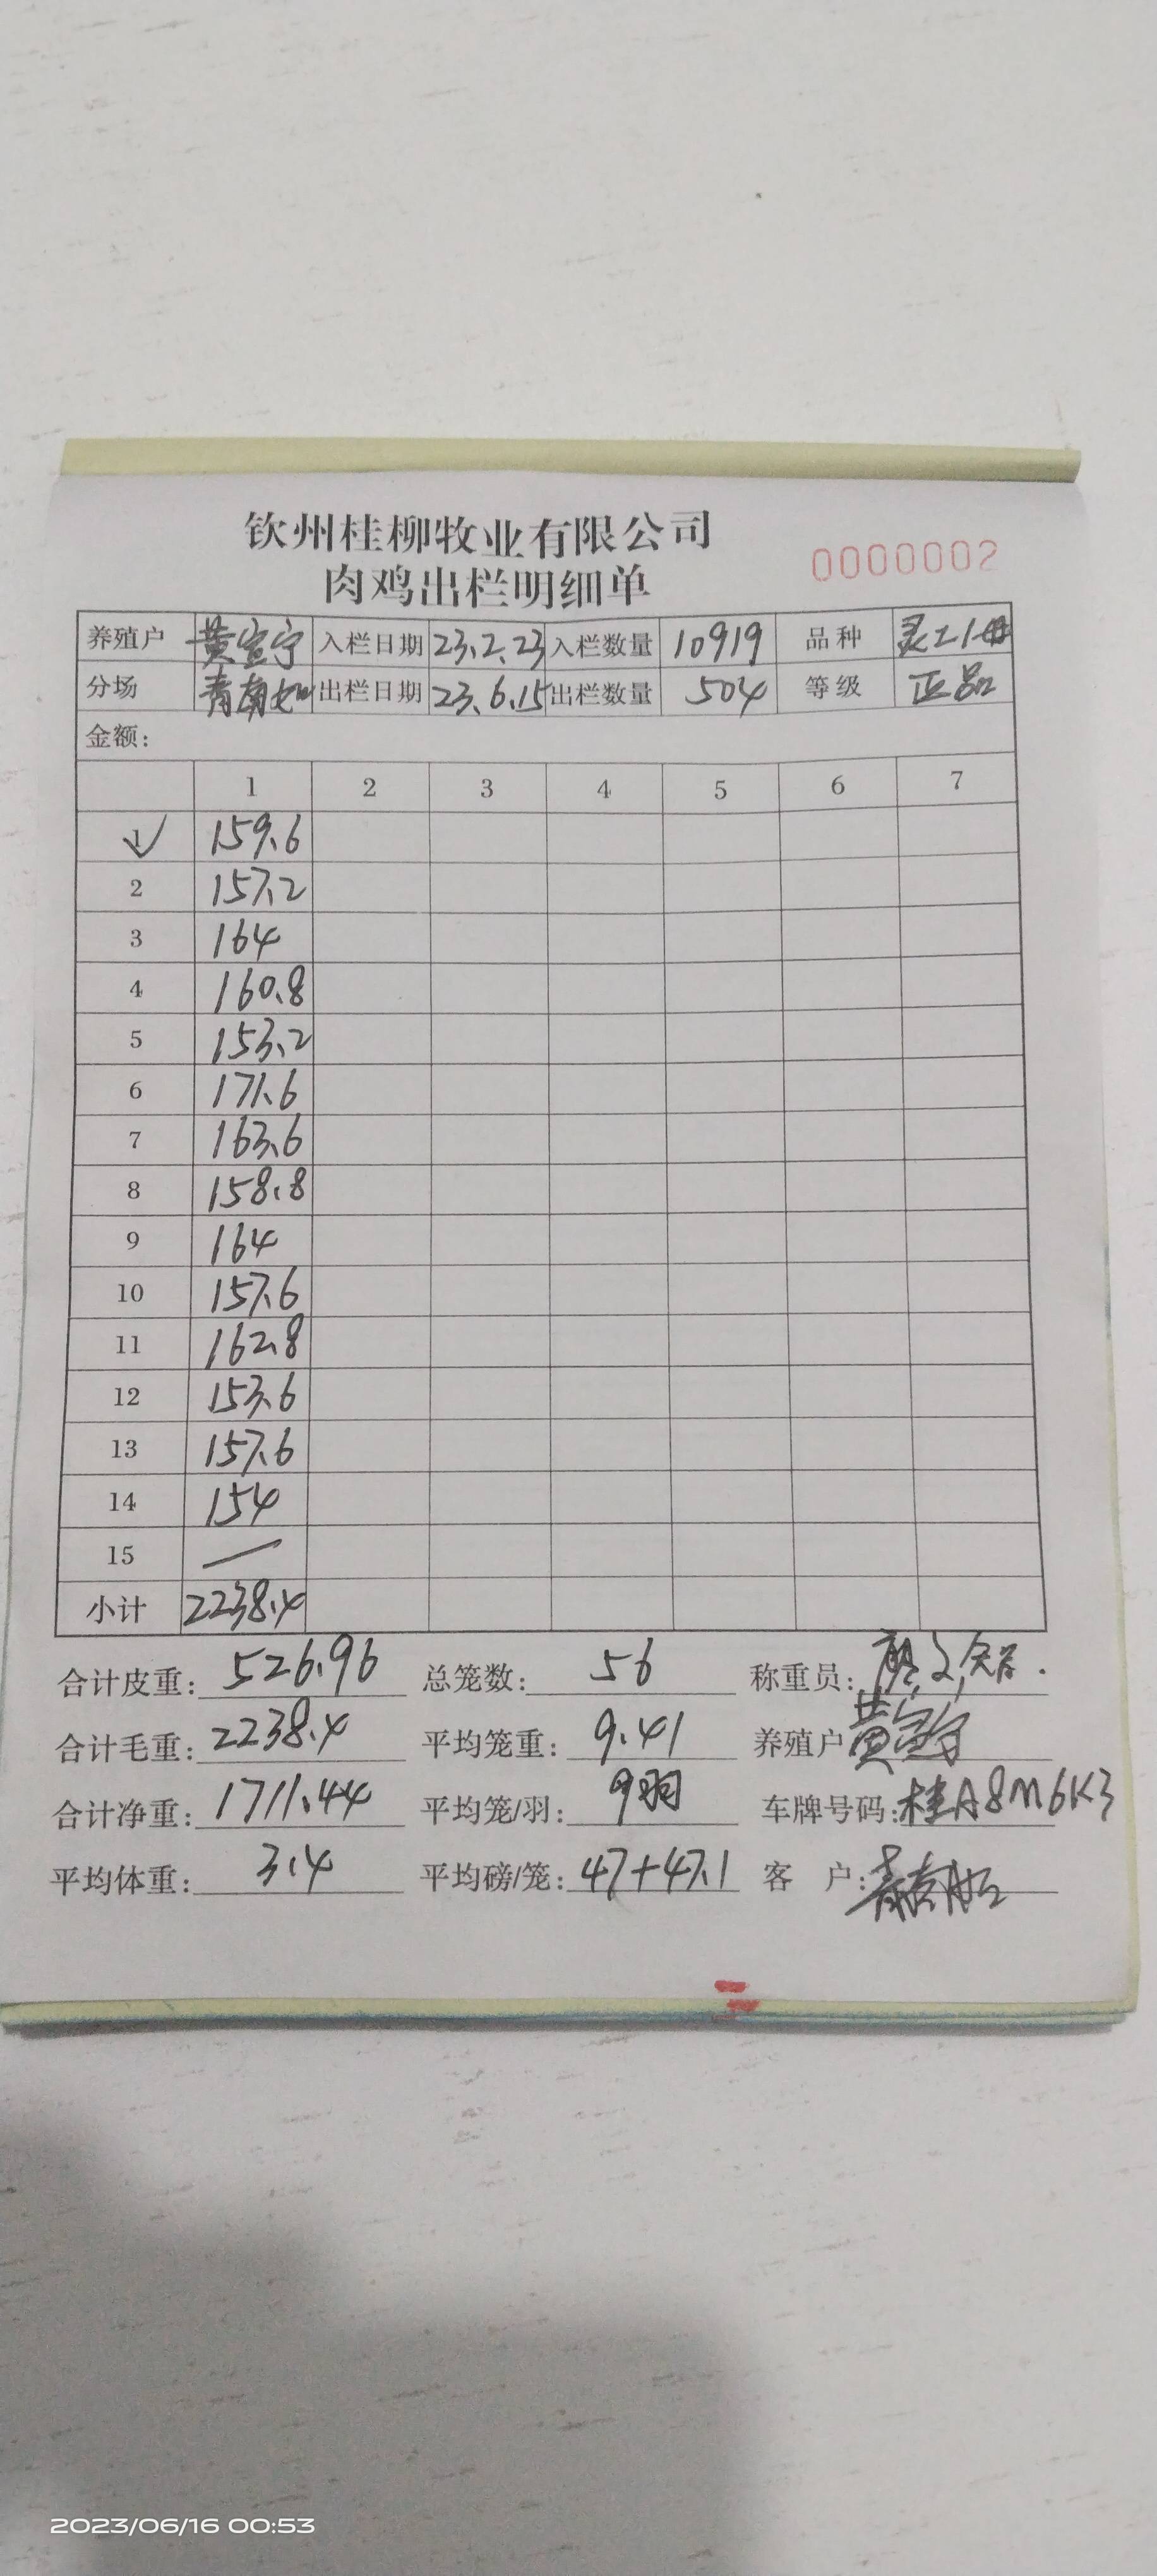 钦州桂柳牧业有限公司
肉鸡出栏明细单 0000002
养殖户 黄宣宁 入栏日期 23.2.23 入栏数量 10919 品种 灵土1母
分场 青南 出栏日期 23.6.15 出栏数量 504 等级 正品
金额:
1 2 3 4 5 6 7
1 159.6
2 157.2
3 164
4 160.8
5 153.2
6 171.6
7 163.6
8 158.8
9 164
10 157.6
11 162.8
12 153.6
13 157.6
14 154
15 —
小计 2238.4
合计皮重: 526.96 总笼数: 56 称重员:
合计毛重: 2238.4 平均笼重: 9.41 养殖户 黄宣宁
合计净重: 1711.44 平均笼/羽: 9羽 车牌号码: 桂A8M6K3
平均体重: 3.4 平均磅/笼: 47+47.1 客 户:
2023/06/16 00:53